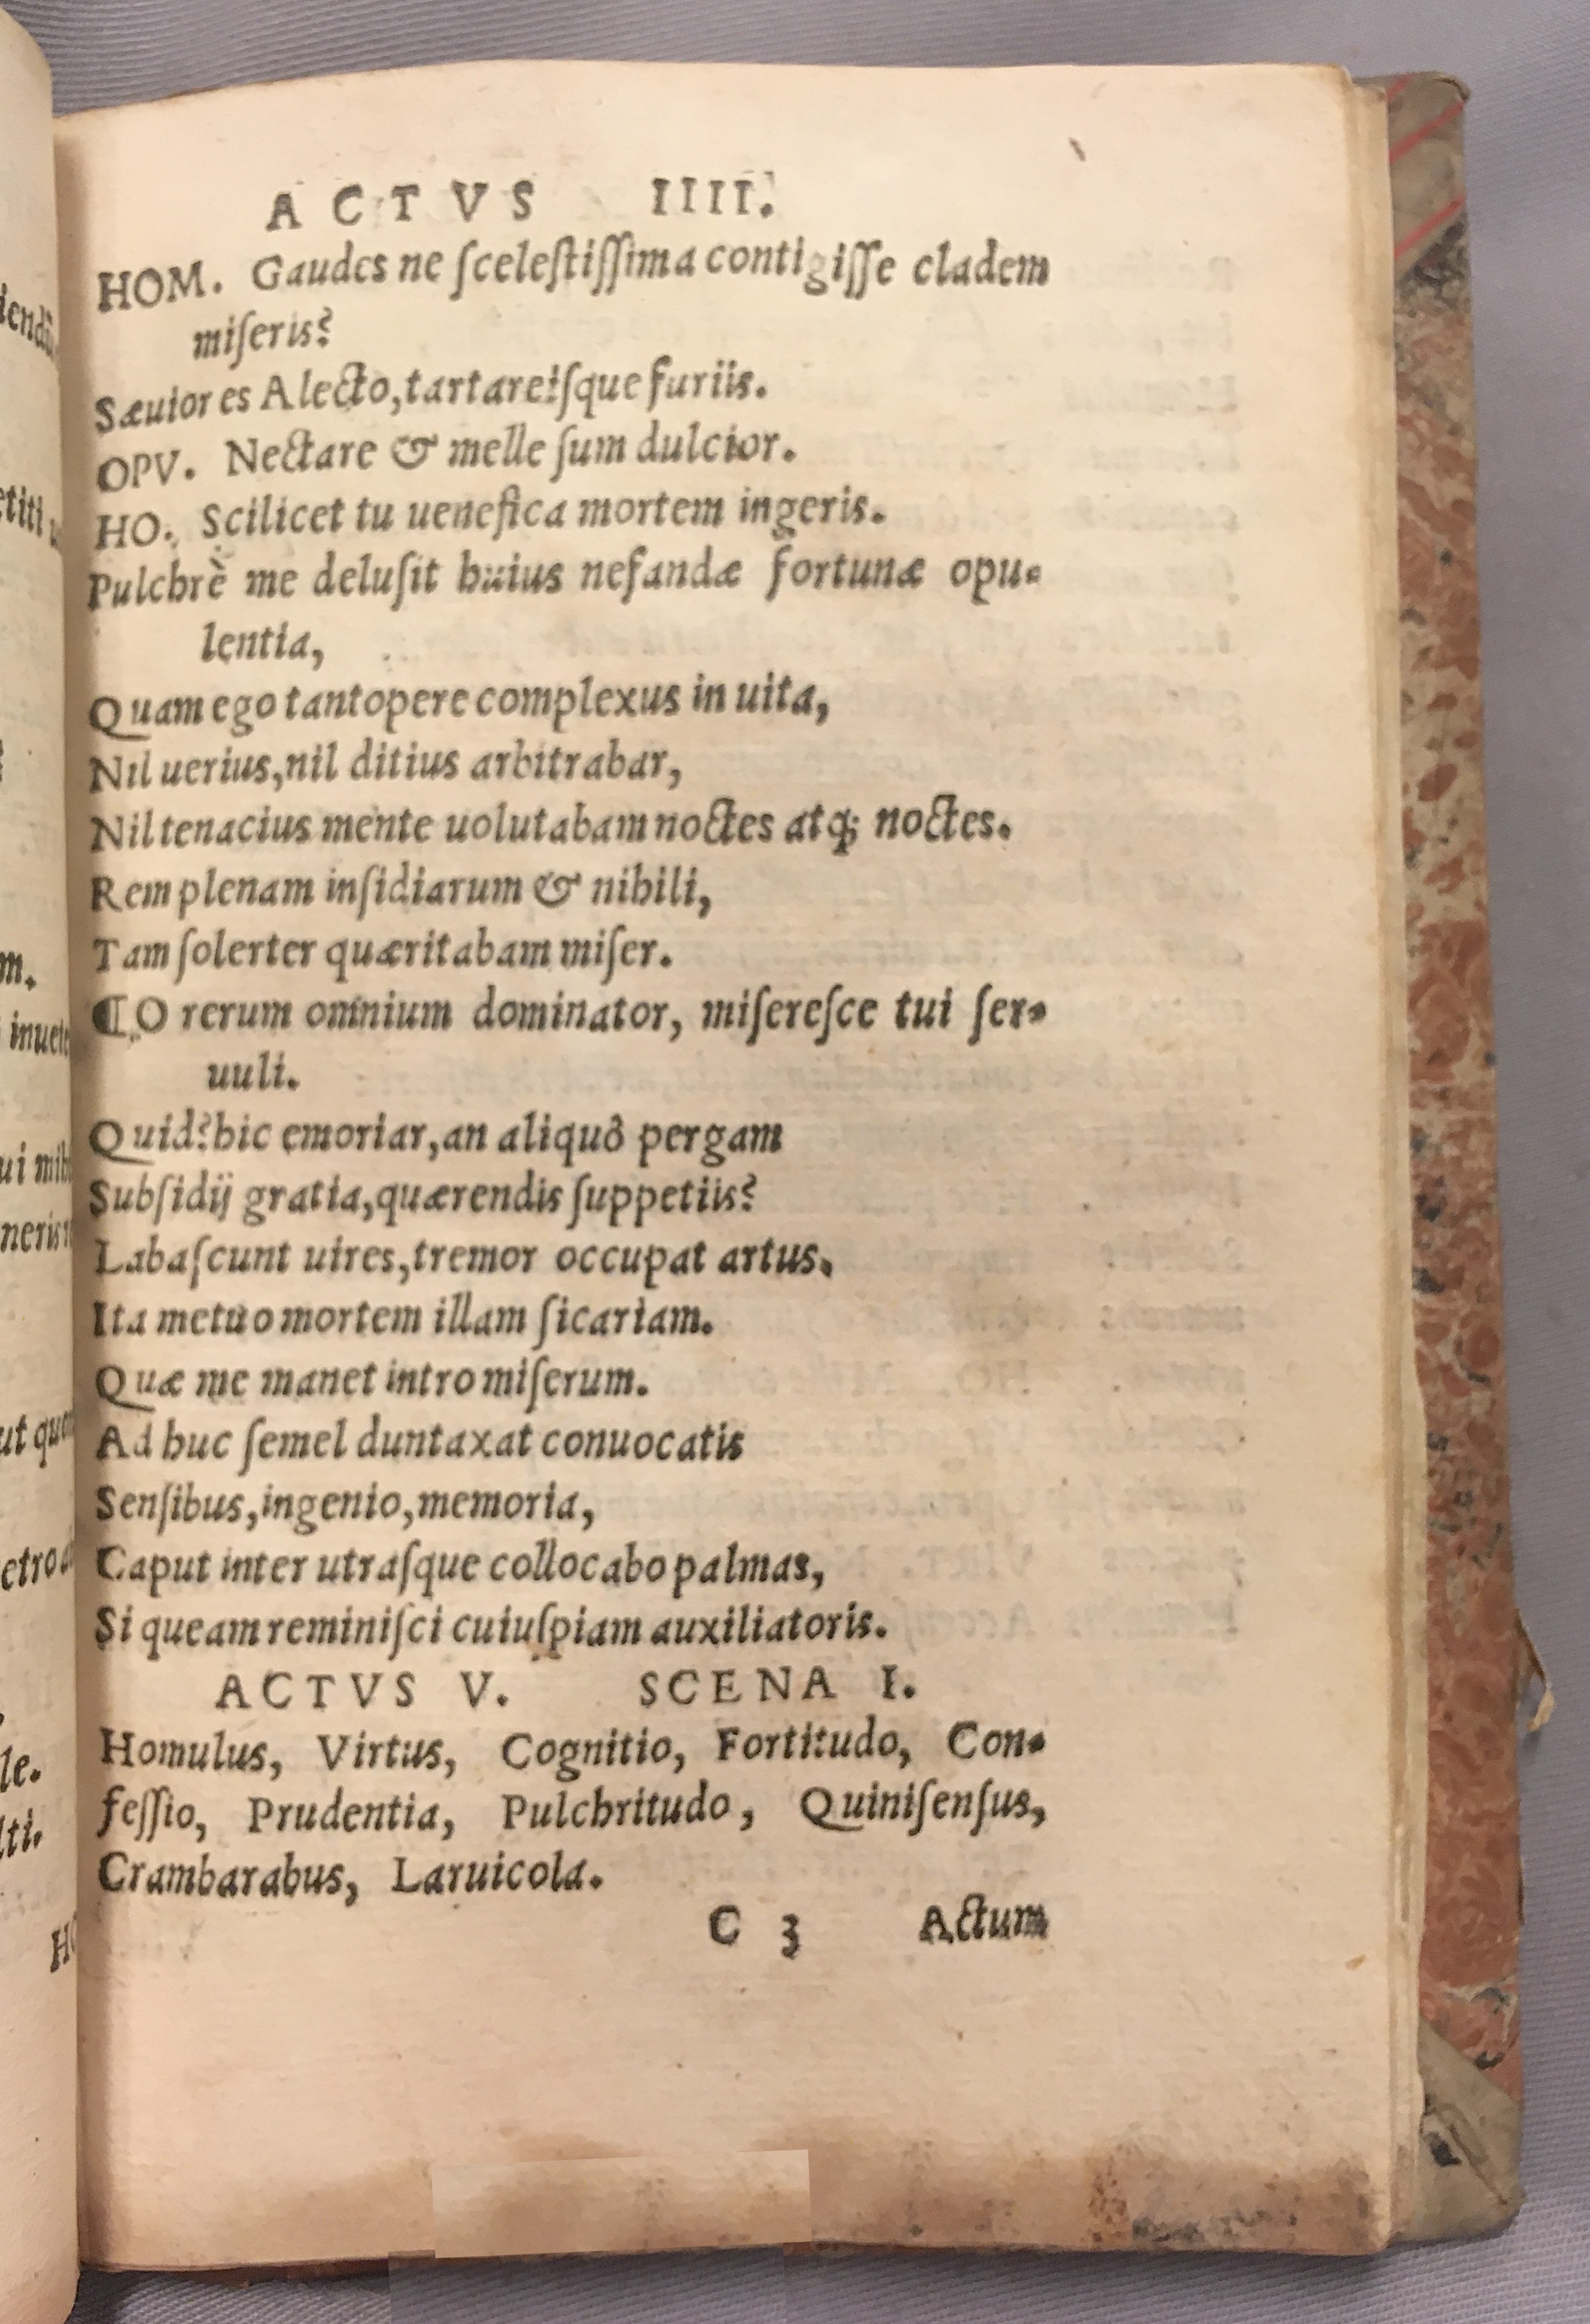 ACTVS IIII.
HOM. Gaudes ne ſceleſtiſſima contigiſſe cladem
miſeris?
Sæuior es Alecto, tartareiſque furiis.
OPV. Nectare & melle ſum dulcior.
HO. Scilicet tu uenefica mortem ingeris.
Pulchrè me deluſit huius nefandæ fortunæ opu-
lentia,
Quam ego tantopere complexus in uita,
Nil uerius, nil ditius arbitrabar,
Nil tenacius mente uolutabam noctes atq; noctes.
Rem plenam inſidiarum & nihili,
Tam ſolerter quæritabam miſer.
¶O rerum omnium dominator, miſereſce tui ſer-
uuli.
Quid? hic emoriar, an aliquò pergam
Subſidij gratia, quærendis ſuppetiis?
Labaſcunt uires, tremor occupat artus.
Ita metuo mortem illam ſicariam.
Quæ me manet intro miſerum.
Ad huc ſemel duntaxat conuocatis
Senſibus, ingenio, memoria,
Caput inter utraſque collocabo palmas,
Si queam reminiſci cuiuſpiam auxiliatoris.
ACTVS V. SCENA I.
Homulus, Virtus, Cognitio, Fortitudo, Con-
feſſio, Prudentia, Pulchritudo, Quiniſenſus,
Crambarabus, Laruicola.
C 3 Actum